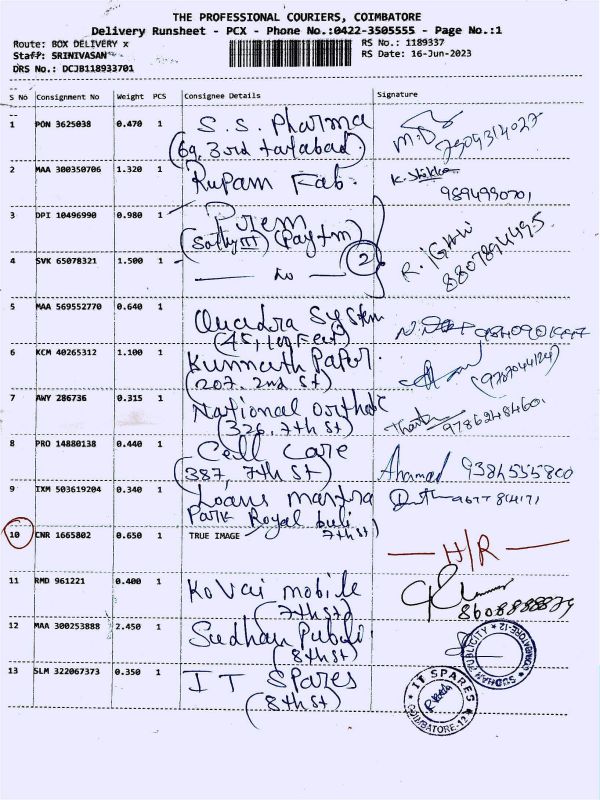 THE PROFESSIONAL COURIERS, COIMBATORE
Delivery Runsheet - PCX - Phone No.:0422-3505555 - Page No.:1
Route: BOX DELIVERY x RS No.: 1189337
Staff: SRINIVASAN RS Date: 16-Jun-2023
DRS No.: DCJB118933701
S No Consignment No Weight PCS Consignee Details Signature
1 PON 3625038 0.470 1 S.S. Pharma
(69, 3rd tatabad)
2 MAA 300350706 1.320 1 Rupam Fab. K.
9894990701
3 DPI 10496990 0.980 1 Prem
(Sathy III) (Paytm)
4 SVK 65078321 1.500 1 — do — 2 R. 8807894495.
5 MAA 569552770 0.640 1 Quadra System
(45, 100 Feet)
6 KCM 40265312 1.100 1 Kunnath Paper.
(207, 2nd St)
7 AWY 286736 0.315 1 National
(326, 7th St) 9786248460
8 PRO 14880138 0.440 1 Cell Care Ahamad 9384555800
(387, 7th St)
9 IXM 503619204 0.340 1 Loans mantra
Park Royal
7th St)
10 CNR 1665802 0.650 1 TRUE IMAGE — H/R —
11 RMD 961221 0.400 1 Kovai mobile
(7th St)
12 MAA 300253888 2.450 1 Sudhan
(8th St)
SUDHAN PUBLICITY * COIMBATORE-12 *
13 SLM 322067373 0.350 1 I T Spares
(8th St)
IT SPARES
COIMBATORE-12